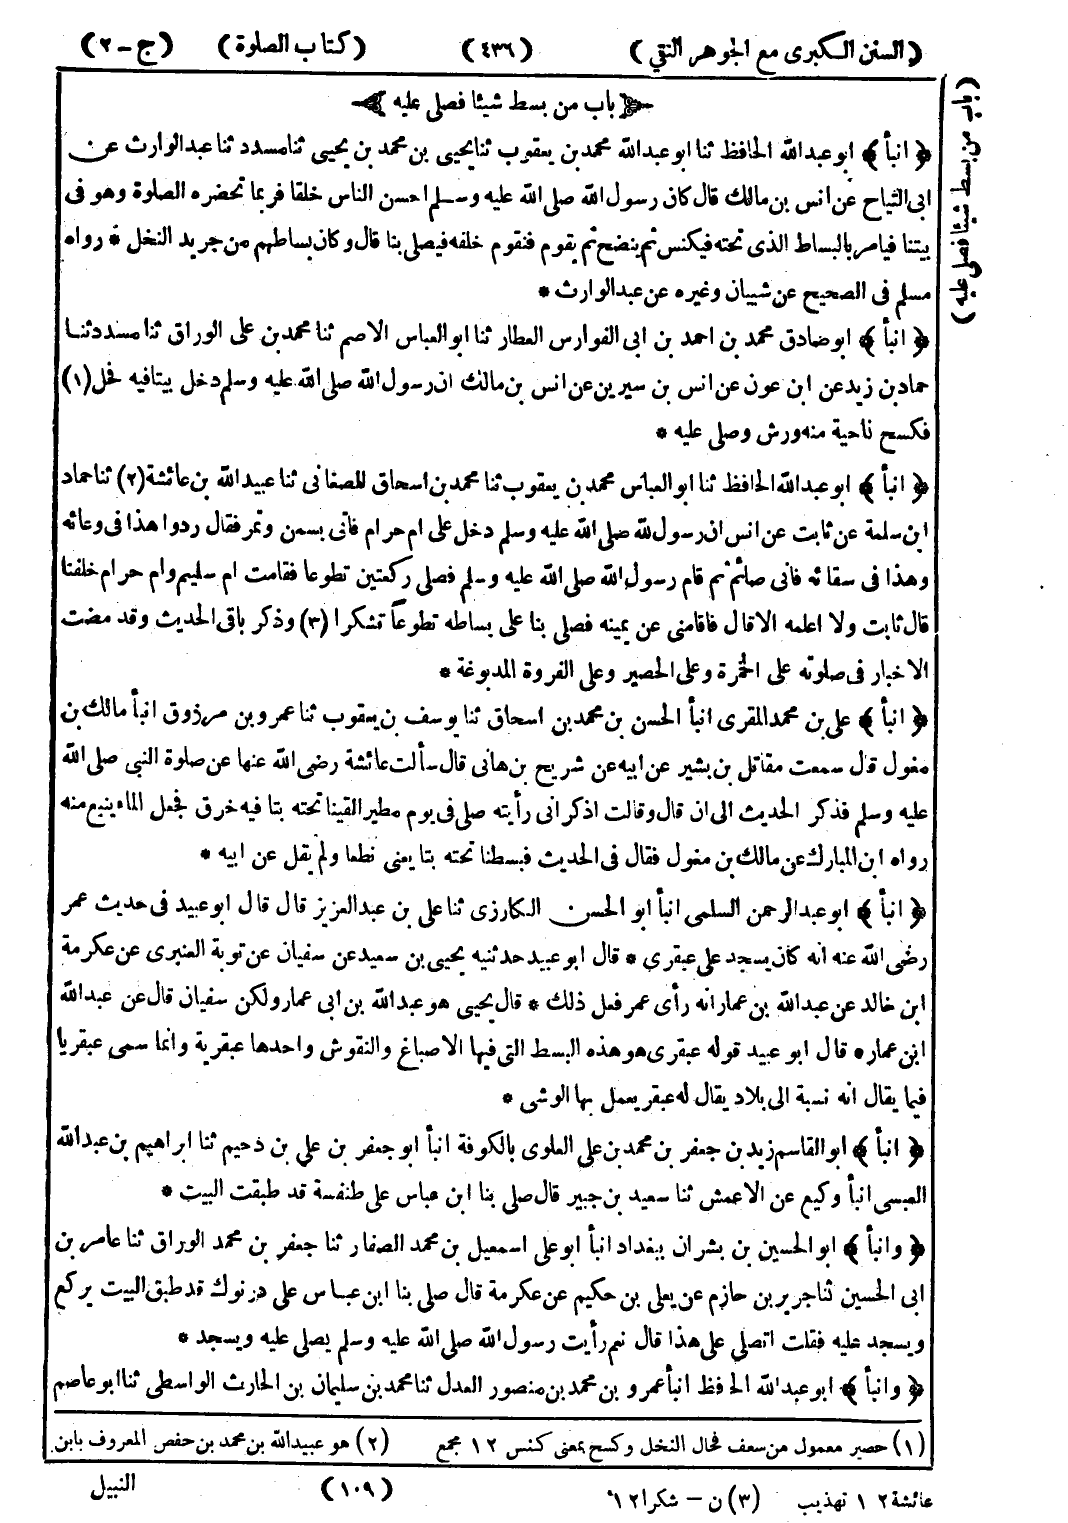 (السنن الكبرى مع الجوهر النقي) (٤٣٦) (كتاب الصلوة) (ج-٢)
(باب من بسط شيئا فصلى عليه)
باب من بسط شيئا فصلى عليه
﴿ انبأ ﴾ ابوعبدالله الحافظ ثنا ابوعبدالله محمدبن يعقوب ثنايحيى بن محمد بن يحيى ثنامسدد ثنا عبدالوارث عن
ابى التياح عن انس بن مالك قال كان رسول الله صلى الله عليه وسلم احسن الناس خلقا فربما تحضره الصلوة وهو فى
بيتنا فيامر بالبساط الذى تحته فيكنس ثم ينضح ثم يقوم فنقوم خلفه فيصلى بنا قال وكان بساطهم من جريد النخل * رواه
مسلم فى الصحيح عن شيبان وغيره عن عبدالوارث *
﴿ انبأ ﴾ ابوصادق محمد بن احمد بن ابى الفوارس العطار ثنا ابوالعباس الاصم ثنا محمدبن على الوراق ثنا مسددثنا
حمادبن زيدعن ابن عون عن انس بن سيرين عن انس بن مالك ان رسول الله صلى الله عليه وسلم دخل بيتافيه فحل (١)
فكسح ناحية منه ورش وصلى عليه *
﴿ انبأ ﴾ ابوعبدالله الحافظ ثنا ابوالعباس محمدبن يعقوب ثنا محمدبن اسحاق للصغانى ثنا عبيدالله بن عائشة (٢) ثناحماد
ابن سلمة عن ثابت عن انس ان رسول الله صلى الله عليه وسلم دخل على ام حرام فأتى بسمن وتمر فقال ردوا هذا فى وعائه
وهذا فى سقائه فانى صائم ثم قام رسول الله صلى الله عليه وسلم فصلى ركعتين تطوعا فقامت ام سليم وام حرام خلفنا
قال ثابت ولا اعلمه الا قال فاقامنى عن يمينه فصلى بنا على بساطه تطوعاً تشكرا (٣) وذكر باقى الحديث وقد مضت
الاخبار فى صلوته على الخمرة وعلى الحصير وعلى الفروة المدبوغة *
﴿ انبأ ﴾ على بن محمدالمقرى انبأ الحسن بن محمدبن اسحاق ثنا يوسف بن يعقوب ثنا عمروبن مرزوق انبأ مالك بن
مغول قال سمعت مقاتل بن بشير عن ابيه عن شريح بن هانى قال سألت عائشة رضى الله عنها عن صلوة النبى صلى الله
عليه وسلم فذكر الحديث الى ان قال وقالت اذكر انى رأيته صلى فى يوم مطير القينا تحته بتا فيه خرق فجعل الماء ينبع منه
رواه ابن المبارك عن مالك بن مغول فقال فى الحديث فبسطنا تحته بتا يعنى نطعا ولم يقل عن ابيه *
﴿ انبأ ﴾ ابوعبدالرحمن السلمى انبأ ابو الحسن الكارزى ثنا على بن عبدالعزيز قال قال ابوعبيد فى حديث عمر
رضى الله عنه انه كان يسجد على عبقرى * قال ابوعبيد حدثنيه يحيى بن سعيد عن سفيان عن توبة العنبرى عن عكرمة
ابن خالد عن عبدالله بن عمار انه رأى عمر فعل ذلك * قال يحيى هو عبدالله بن ابى عمار ولكن سفيان قال عن عبدالله
ابن عمار * قال ابو عبيد قوله عبقرى هو هذه البسط التى فيها الاصباغ والنقوش واحدها عبقرية وانما سمى عبقريا
فيما يقال انه نسبة الى بلاد يقال له عبقر يعمل بها الوشى *
﴿ انبأ ﴾ ابوالقاسم زيدبن جعفر بن محمدبن على العلوى بالكوفة انبأ ابوجعفر بن على بن دحيم ثنا ابراهيم بن عبدالله
العبسى انبأ وكيع عن الاعمش ثنا سعيد بن جبير قال صلى بنا ابن عباس على طنفسة قد طبقت البيت *
﴿ وانبأ ﴾ ابوالحسين بن بشران ببغداد انبأ ابوعلى اسمعيل بن محمد الصفار ثنا جعفر بن محمد الوراق ثنا عامر بن
ابى الحسين ثناجرير بن حازم عن يعلى بن حكيم عن عكرمة قال صلى بنا ابن عباس على درنوك قد طبق البيت يركع
ويسجد عليه فقلت اتصلى على هذا قال نعم رأيت رسول الله صلى الله عليه وسلم يصلى عليه ويسجد *
﴿ وانبأ ﴾ ابوعبدالله الحافظ انبأ عمرو بن محمدبن منصور العدل ثنا محمدبن سليمان بن الحارث الواسطى ثنا ابوعاصم
(١) حصير معمول من سعف فحال النخل وكسح بمعنى كنس ١٢ مجمع (٢) هو عبيدالله بن محمد بن حفص المعروف بابن
عائشة ١٢ تهذيب (٣) ن - شكرا ١٢
(١٠٩) النبيل